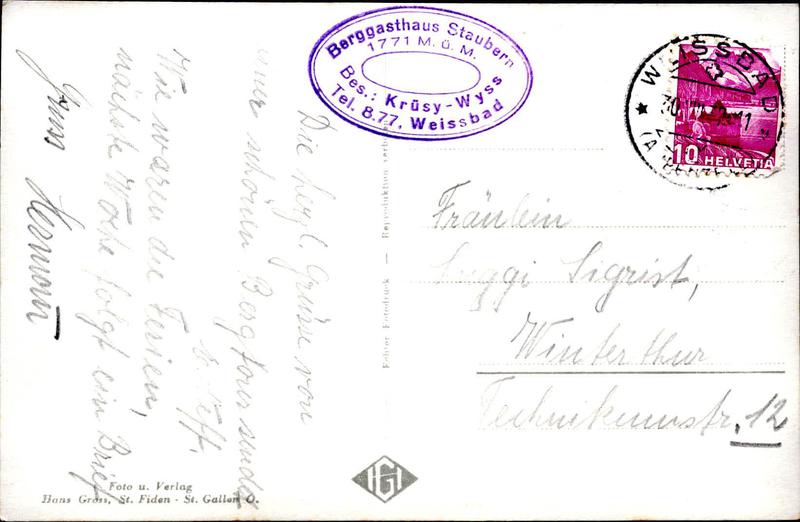 Berggasthaus Staubern
1771 M. ü. M.
Bes.: Krüsy-Wyss
Tel. 8.77, Weissbad
WEISSBAD
10 HELVETIA
Die herzl. Grüsse von
einer schönen Bergtour sendet
Wie waren die Ferien,
nächste Woche folgt ein Brief
Gruss Hermann
Fräulein
Sigrist,
Winterthur
Technikumstr. 12
Foto u. Verlag
Hans Gross, St. Fiden - St. Gallen O.
IGI